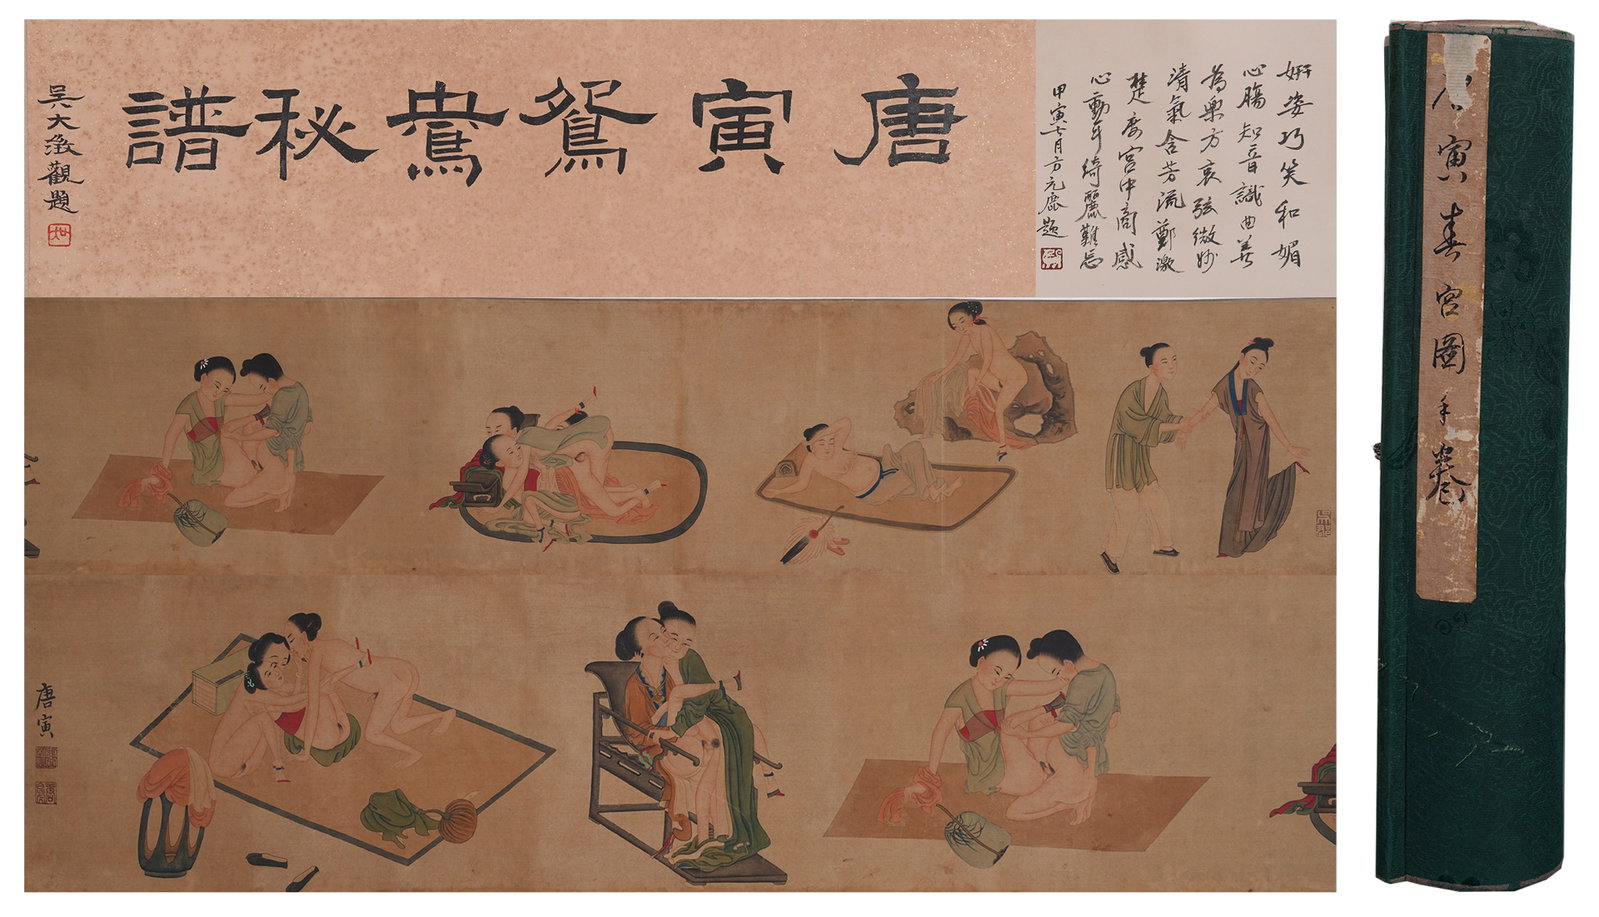 唐寅鴛鴦秘譜
吳大澂觀題
妍姿巧笑和媚
心腸知音識曲善
為樂方哀弦微妙
清氣含芳流鄭激
楚度宮中商感
心動耳綺麗難忘
甲寅七月方元鹿題
寅春宮圖手卷
唐寅